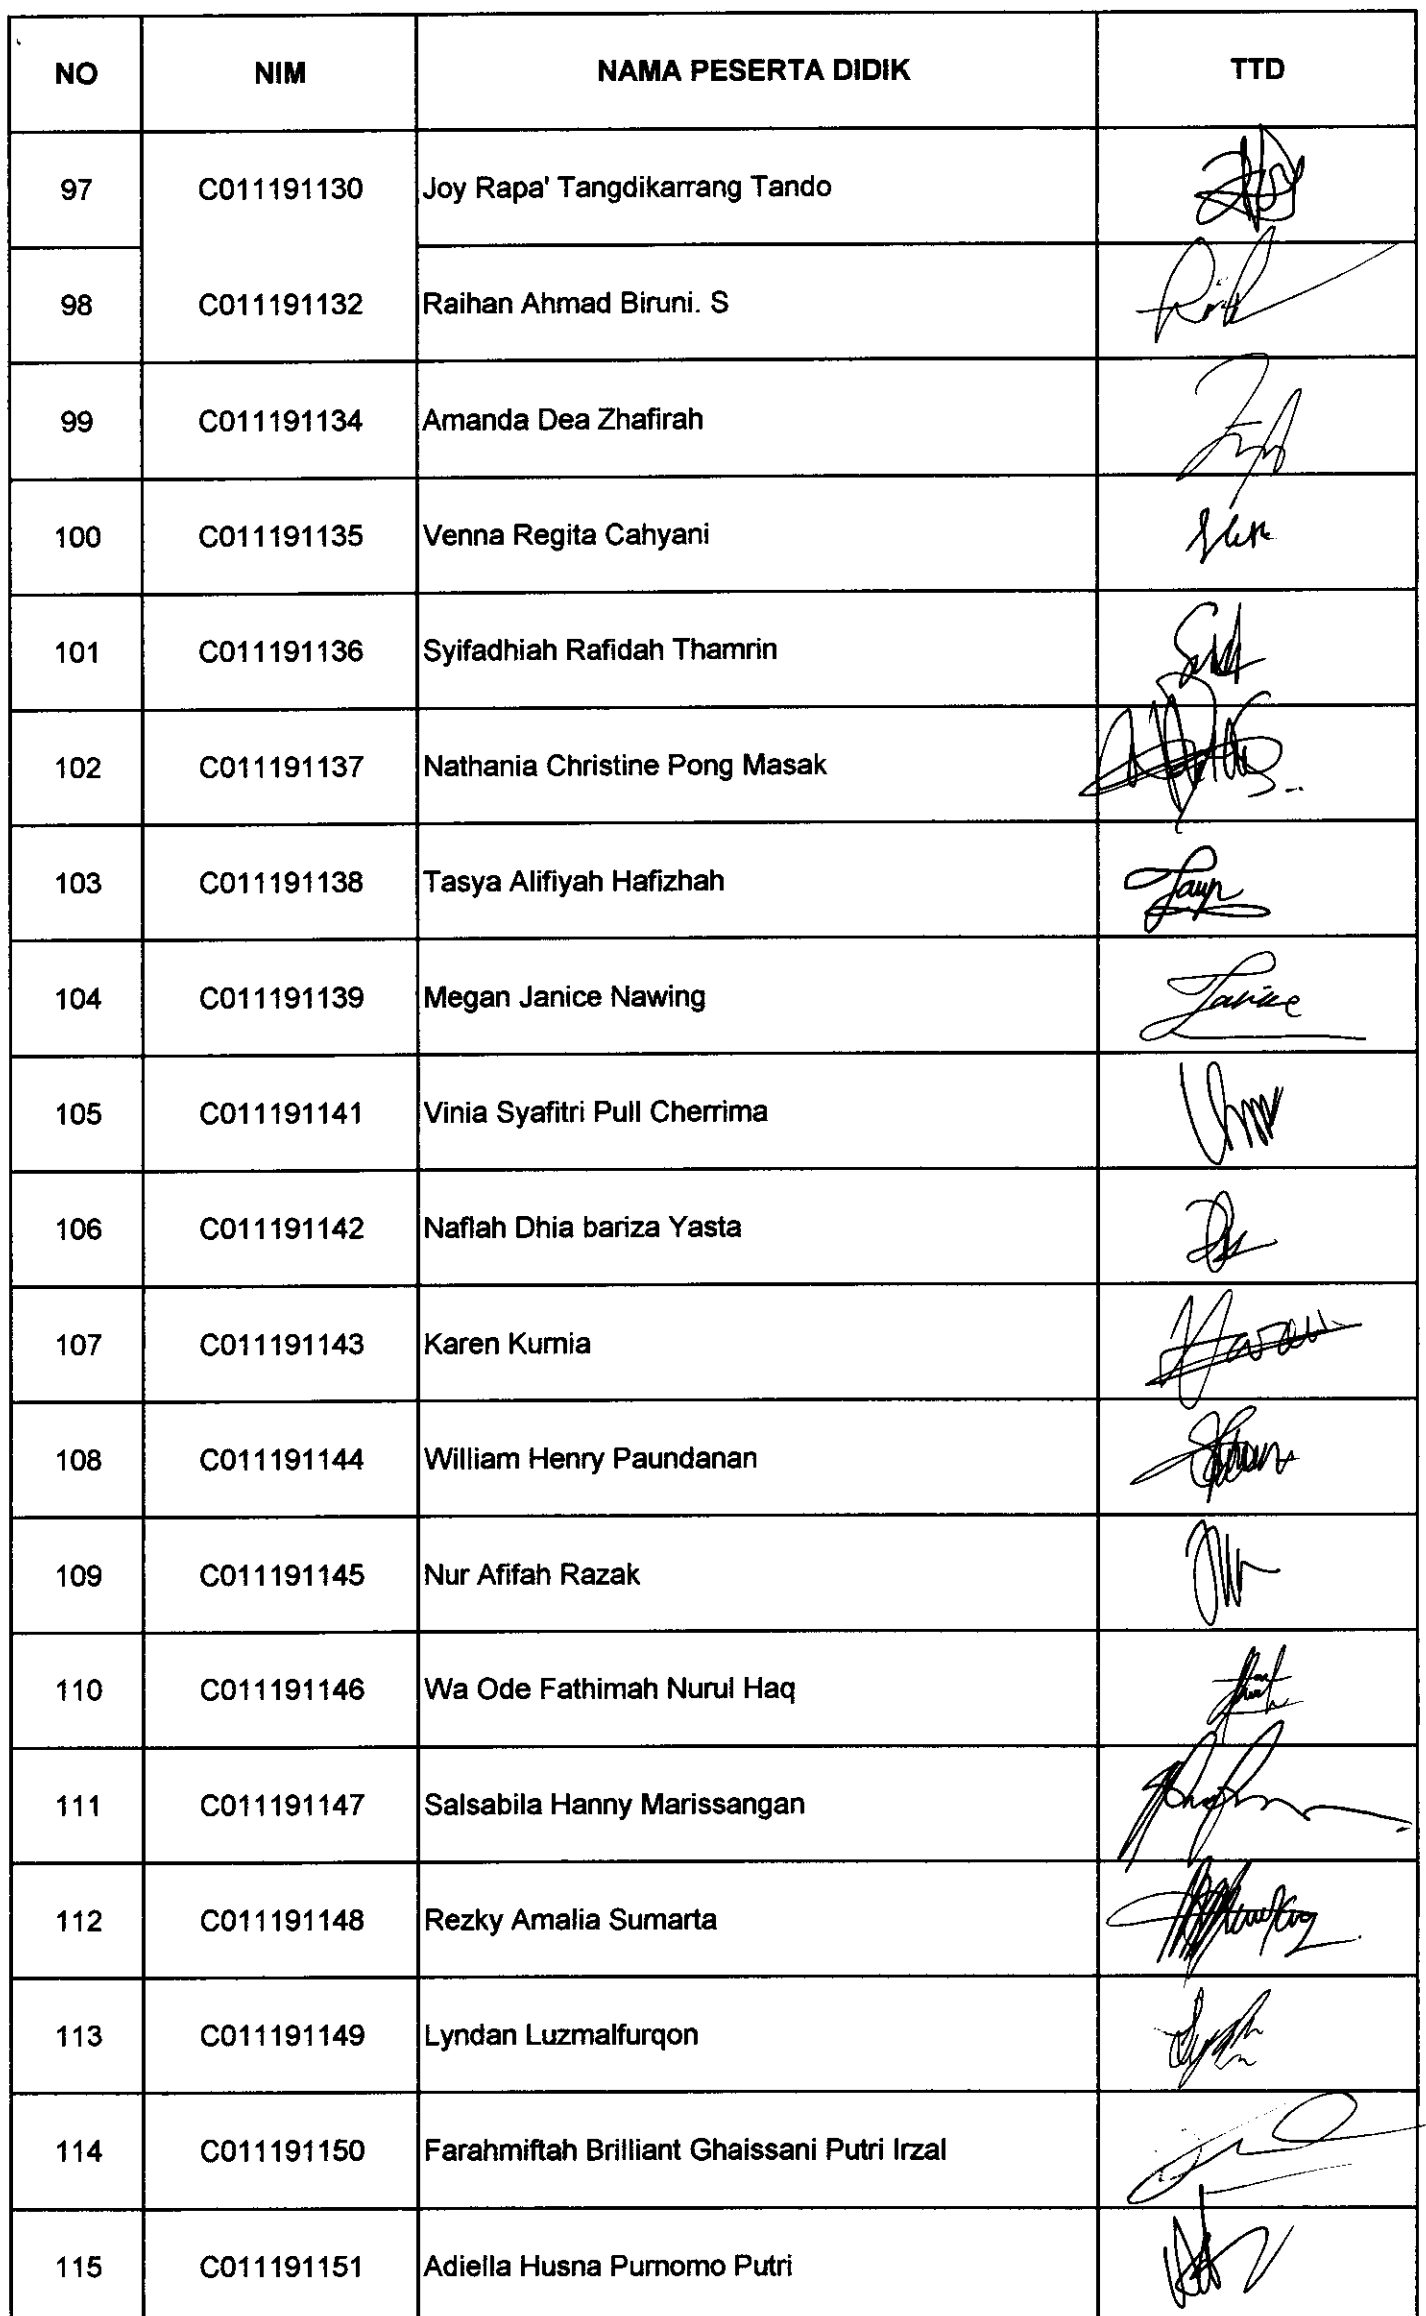 NO NIM NAMA PESERTA DIDIK TTD
97 C011191130 Joy Rapa' Tangdikarrang Tando
98 C011191132 Raihan Ahmad Biruni. S
99 C011191134 Amanda Dea Zhafirah
100 C011191135 Venna Regita Cahyani
101 C011191136 Syifadhiah Rafidah Thamrin
102 C011191137 Nathania Christine Pong Masak
103 C011191138 Tasya Alifiyah Hafizhah
104 C011191139 Megan Janice Nawing Janice
105 C011191141 Vinia Syafitri Pull Cherrima
106 C011191142 Naflah Dhia bariza Yasta
107 C011191143 Karen Kurnia
108 C011191144 William Henry Paundanan
109 C011191145 Nur Afifah Razak
110 C011191146 Wa Ode Fathimah Nurul Haq
111 C011191147 Salsabila Hanny Marissangan
112 C011191148 Rezky Amalia Sumarta
113 C011191149 Lyndan Luzmalfurqon
114 C011191150 Farahmiftah Brilliant Ghaissani Putri Irzal
115 C011191151 Adiella Husna Purnomo Putri